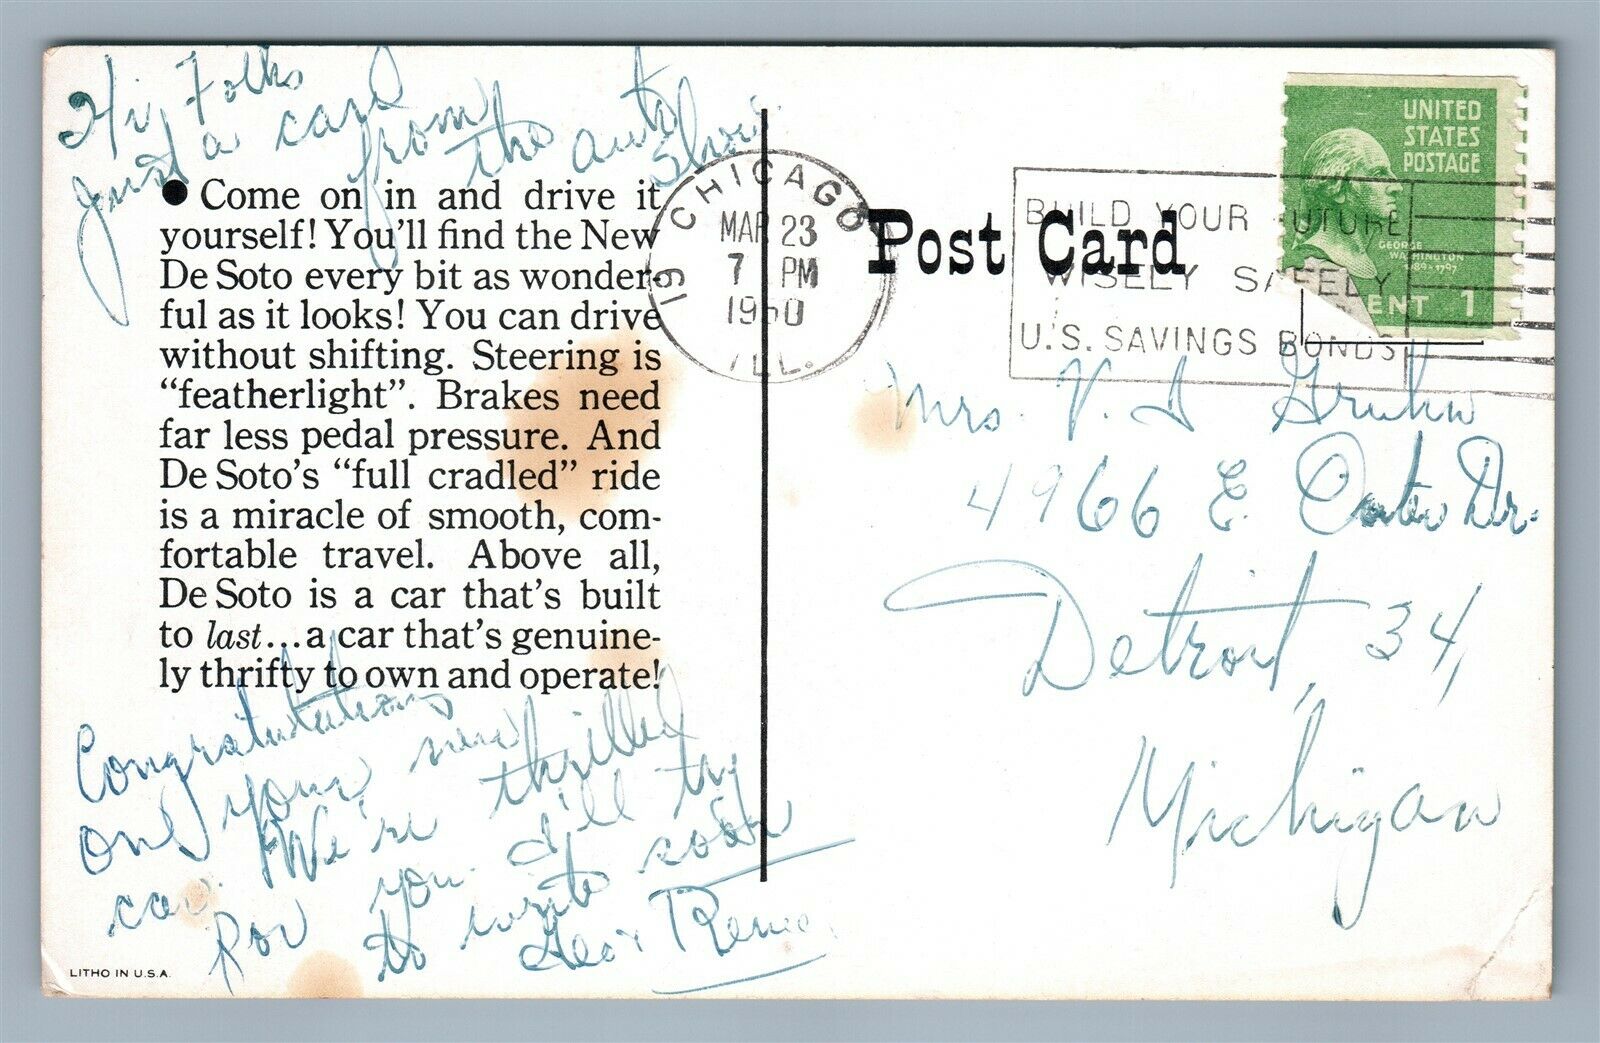 Hi, Folks
Just a card
from
the auto
Show.
● Come on in and drive it
yourself! You'll find the New
De Soto every bit as wonder-
ful as it looks! You can drive
without shifting. Steering is
"featherlight". Brakes need
far less pedal pressure. And
De Soto's "full cradled" ride
is a miracle of smooth, com-
fortable travel. Above all,
De Soto is a car that's built
to last...a car that's genuine-
ly thrifty to own and operate!
Congratulations
on your new
car. We're thrilled
for you. I'll try
to write soon
Renee
LITHO IN U.S.A.
CHICAGO 19
MAR 23
7 PM
1950
ILL.
Post Card
BUILD YOUR FUTURE
WISELY SAFELY
U.S. SAVINGS BONDS
UNITED
STATES
POSTAGE
GEORGE
WASHINGTON
1789-1797
CENT 1
Mrs. V. J
4966 E. Outer Dr.
Detroit, 34,
Michigan